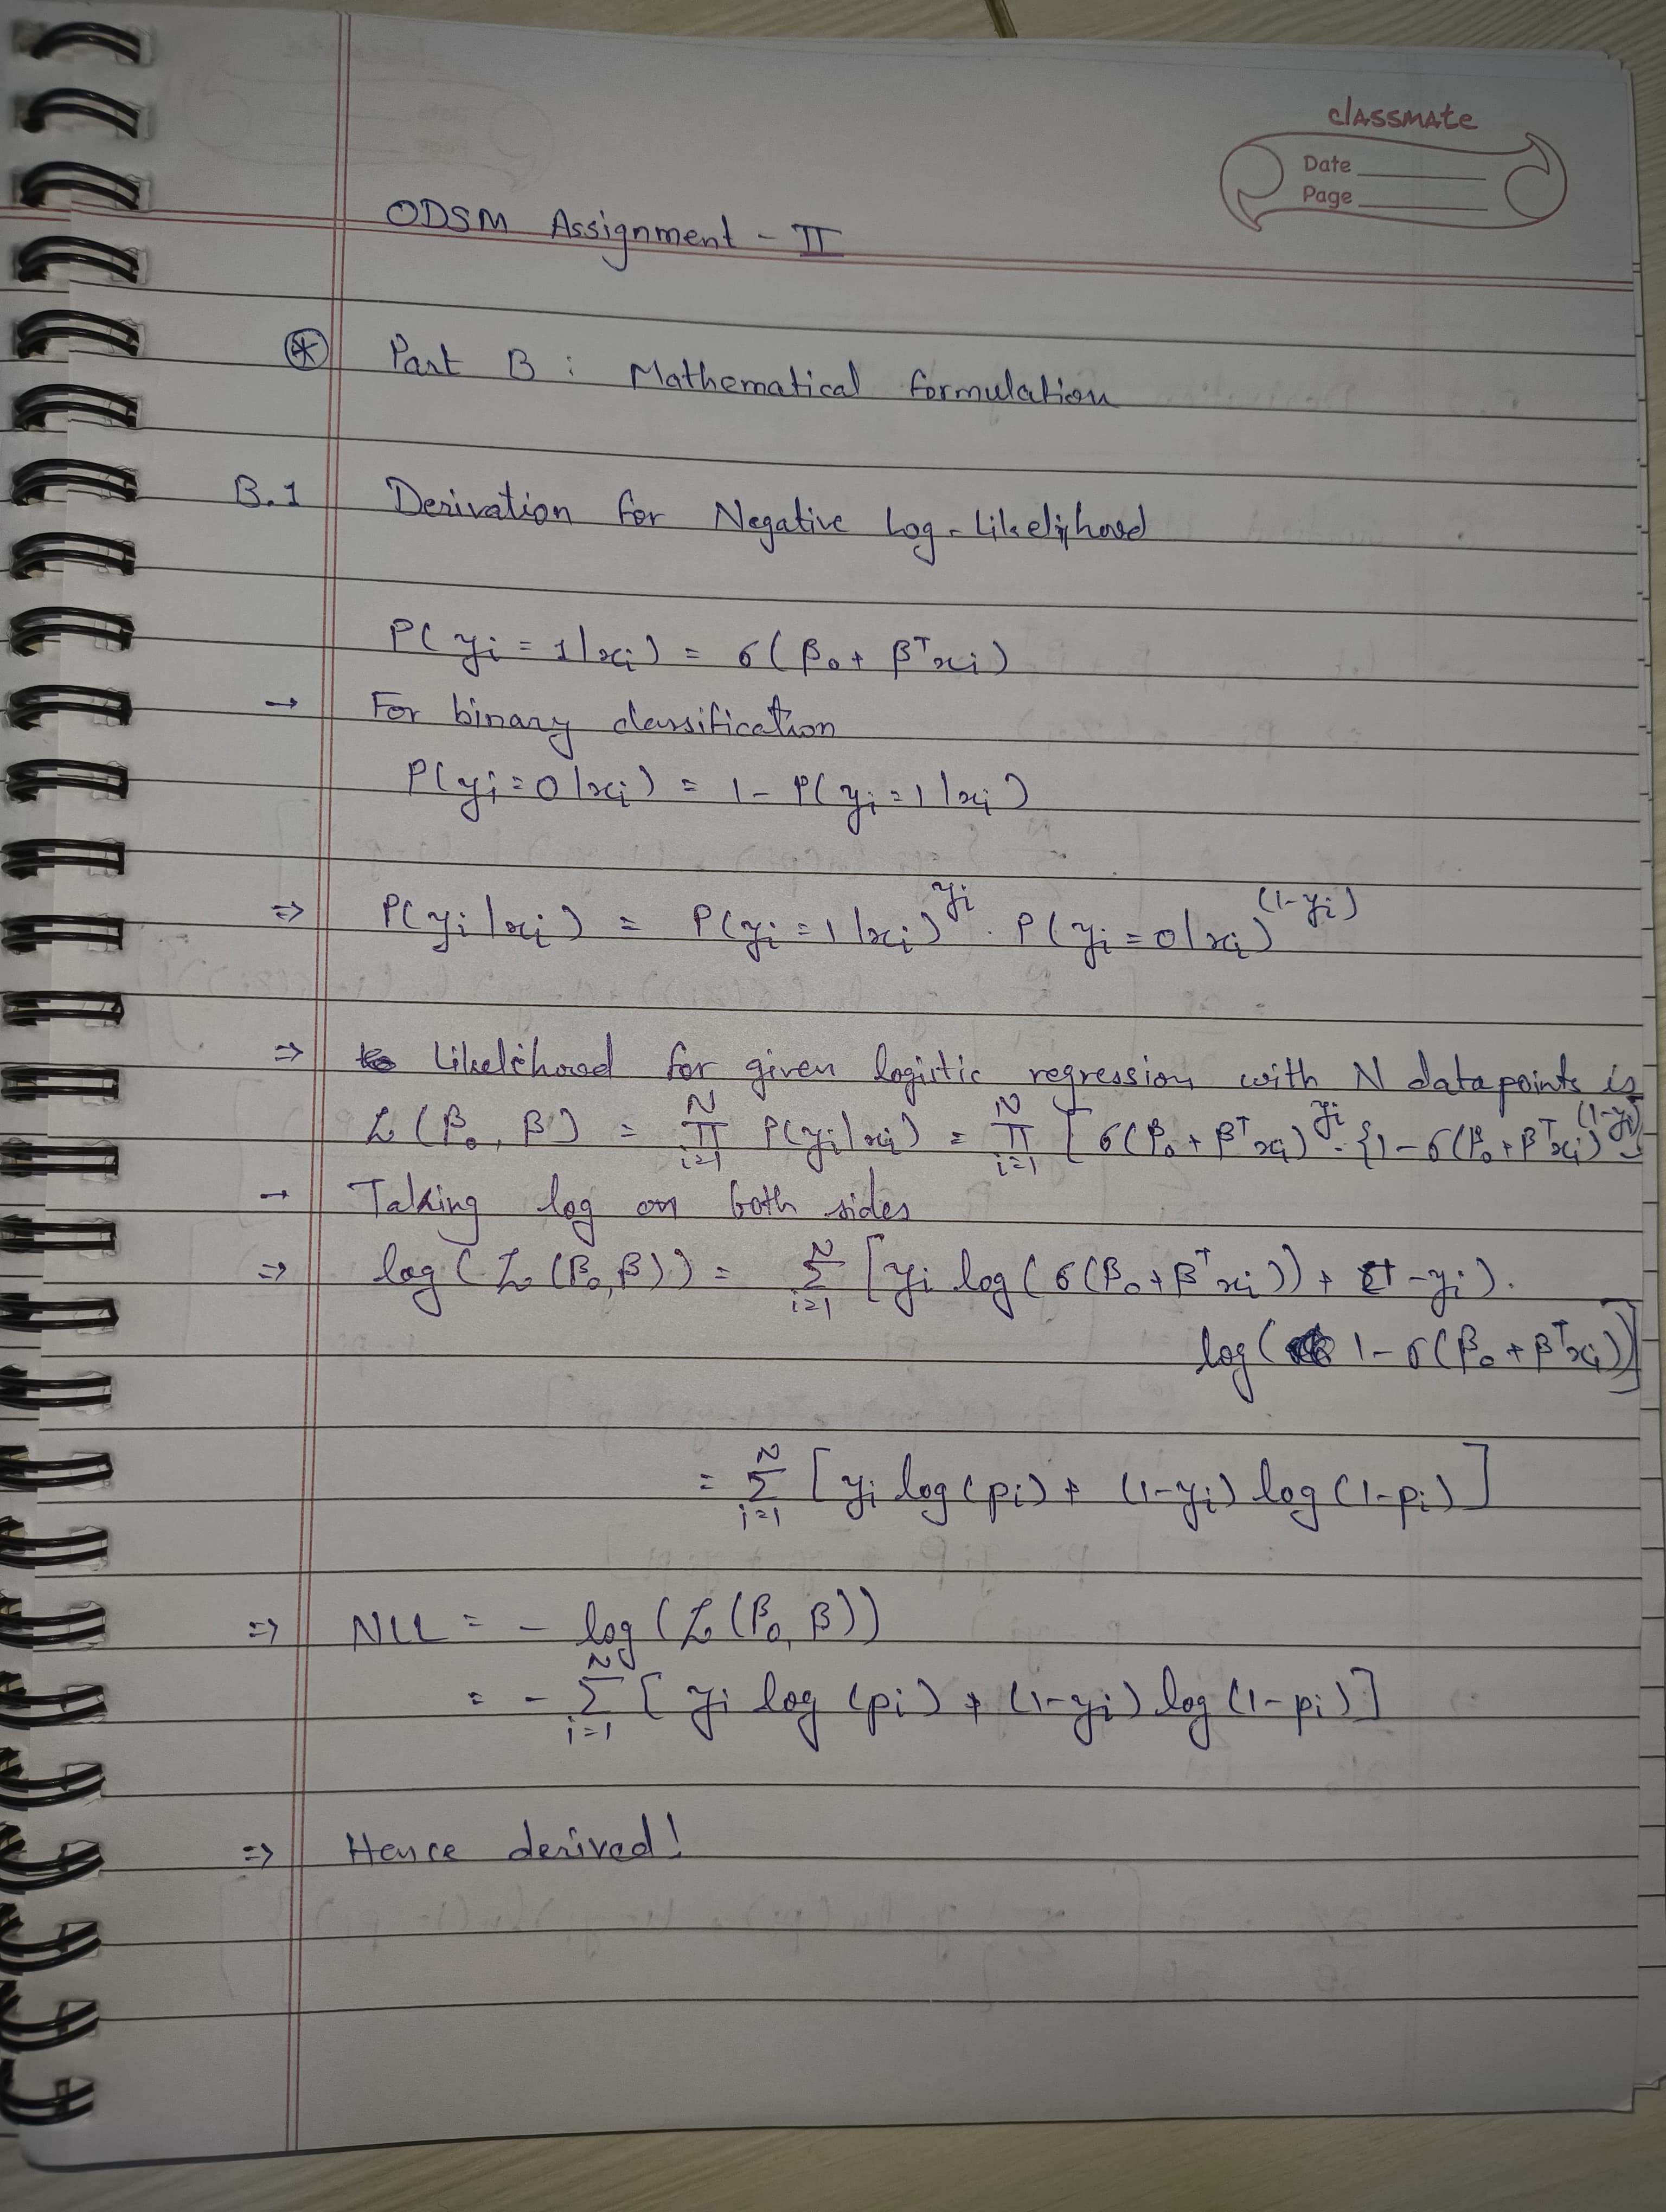 classmate
Date
Page
ODSM Assignment - II
⊛ Part B : Mathematical formulation
B.1 Derivation for Negative Log-Likelihood
P(yi = 1|xi) = σ(β₀ + βᵀxi)
→ For binary classification
P(yi = 0|xi) = 1 - P(yi = 1|xi)
⇒ P(yi|xi) = P(yi = 1|xi)^yi . P(yi = 0|xi)^(1-yi)
⇒ Likelihood for given logistic regression with N datapoints is
L(β₀, β) = ∏_{i=1}^N P(yi|xi) = ∏_{i=1}^N [σ(β₀ + βᵀxi)^yi . {1 - σ(β₀ + βᵀxi)^(1-yi)}]
→ Taking log on both sides
⇒ log(L(β₀, β)) = Σ_{i=1}^N [yi log(σ(β₀ + βᵀxi)) + (1 - yi).
log(1 - σ(β₀ + βᵀxi))]
= Σ_{i=1}^N [yi log(pi) + (1-yi) log(1-pi)]
⇒ NLL = - log(L(β₀, β))
= - Σ_{i=1}^N [yi log(pi) + (1-yi) log(1-pi)]
⇒ Hence derived!